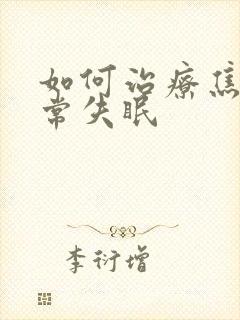 如何治疗焦
常失眠
李衍增